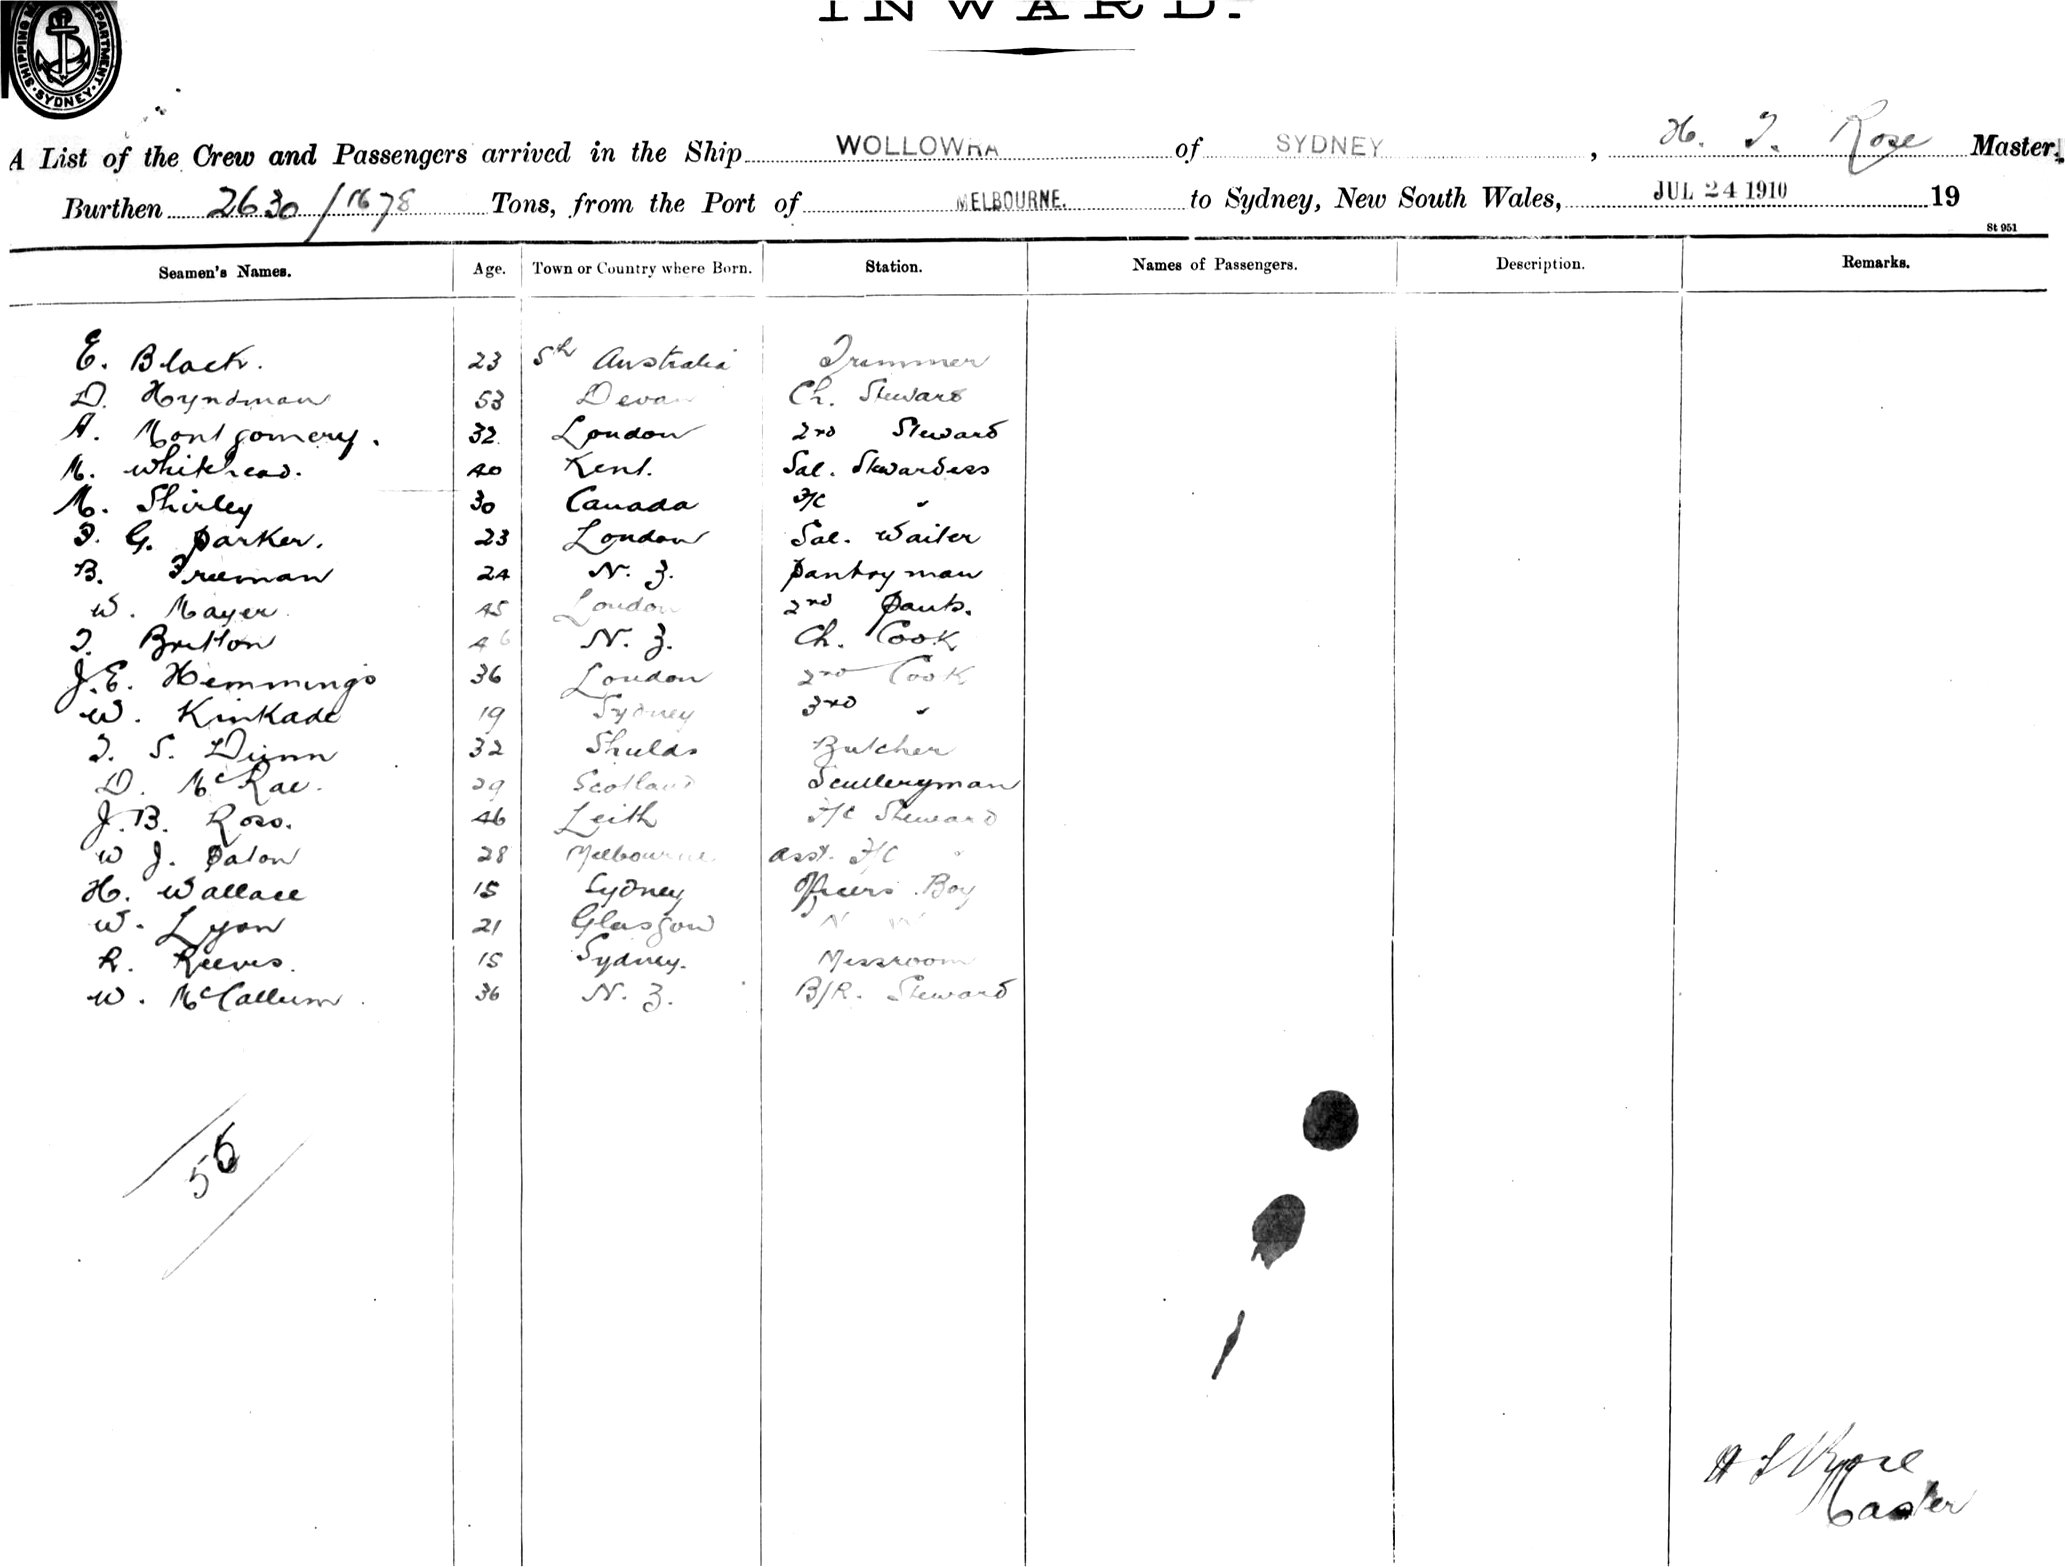 INWARD.
SHIPPING DEPARTMENT SYDNEY
A List of the Crew and Passengers arrived in the Ship WOLLOWRA of SYDNEY, H. T. Rose Master,
Burthen 2630/1678 Tons, from the Port of MELBOURNE. to Sydney, New South Wales, JUL 24 1910 19
St 951
Seamen's Names. Age. Town or Country where Born. Station. Names of Passengers. Description. Remarks.
E. Black. 23 Sth Australia Trimmer
D. Hyndman 53 Devon Ch. Steward
A. Montgomery. 32 London 2nd Steward
M. Whitehead. 40 Kent. Sal. Stewardess
M. Shirley 30 Canada F/C "
F. G. Parker. 23 London Sal. Waiter
B. Freeman 24 N. Z. Pantryman
W. Mayer 45 London 2nd Pants.
T. Britton 46 N. Z. Ch. Cook
J. E. Hemmings 36 London 2nd Cook
W. Kinkade 19 Sydney 3rd "
T. S. Dunn 32 Shields Butcher
D. McRae. 29 Scotland Sculleryman
J. B. Ross. 46 Leith F/C Steward
W J. Paton 28 Melbourne Asst. F/C "
H. Wallace 15 Sydney Officers Boy
W. Lyon 21 Glasgow N W
R. Reeves. 15 Sydney. Messroom
W. McCallum. 36 N. Z. B/R. Steward
56
H T Rose
Master